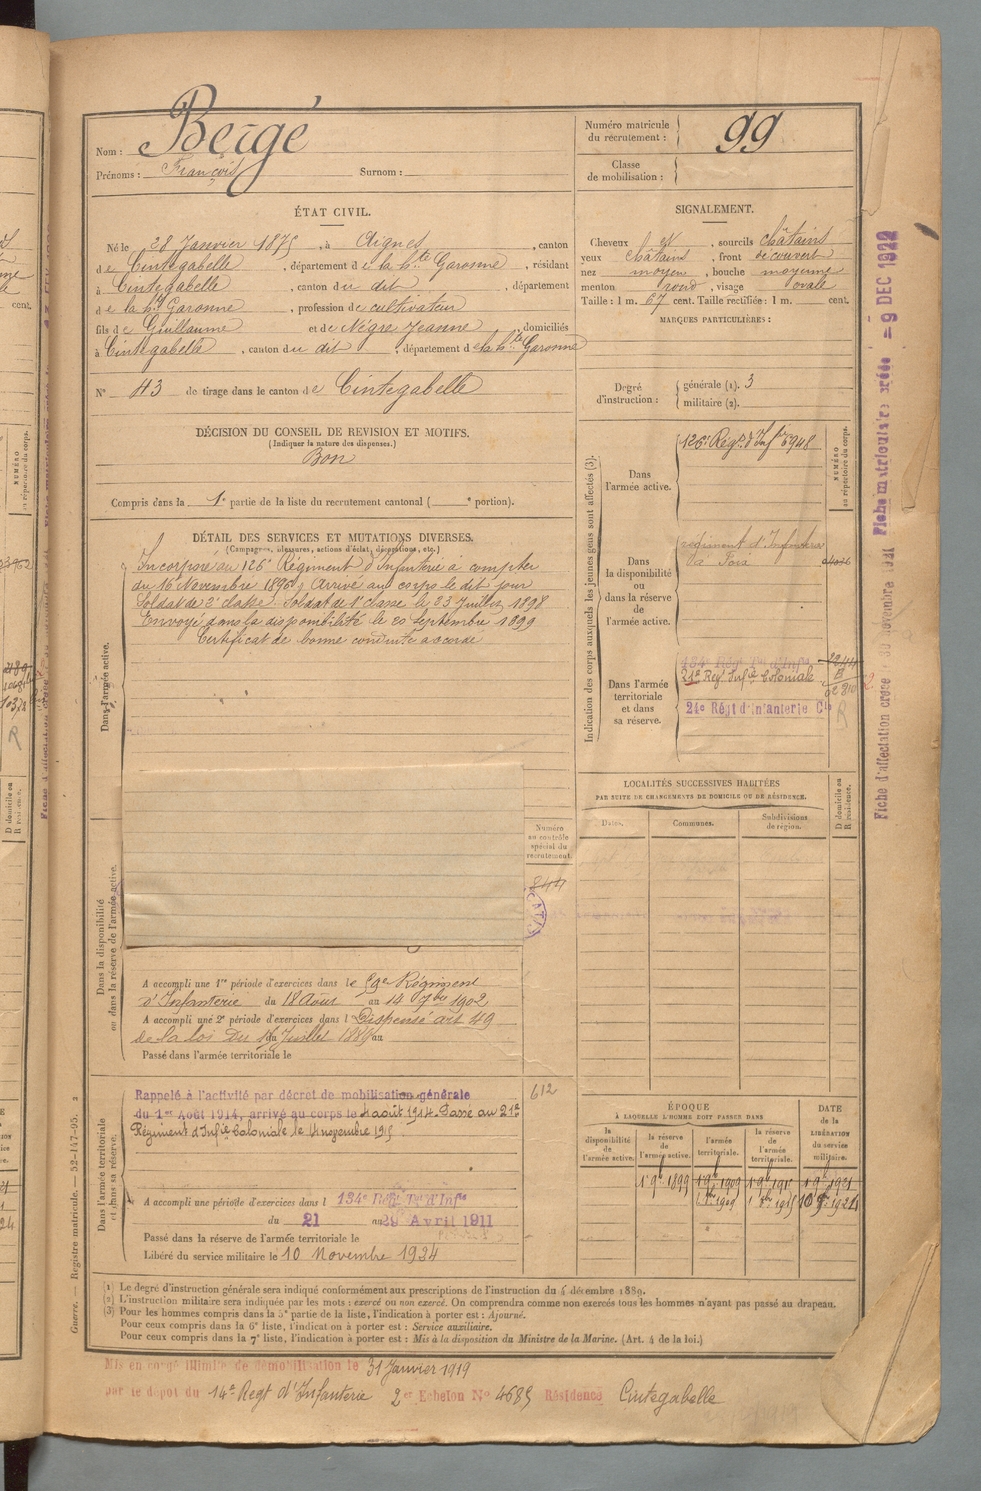 Nom : Bergé
Prénoms : François Surnom :
Numéro matricule du recrutement : 99
Classe de mobilisation :
ÉTAT CIVIL.
Né le 28 Janvier 1875, à Aignes, canton
de Cintegabelle, département de la hte Garonne, résidant
à Cintegabelle, canton du dit, département
de la hte Garonne, profession de cultivateur
fils de Guillaume et de Nègre Jeanne, domiciliés
à Cintegabelle, canton du dit, département de la hte Garonne
N° 43 de tirage dans le canton de Cintegabelle
SIGNALEMENT.
Cheveux et, sourcils châtains
yeux châtains, front découvert
nez moyen, bouche moyenne
menton rond, visage ovale
Taille : 1 m. 67 cent. Taille rectifiée : 1 m. cent.
MARQUES PARTICULIÈRES :
Degré d'instruction : générale (1). 3
militaire (2).
DÉCISION DU CONSEIL DE REVISION ET MOTIFS.
(Indiquer la nature des dispenses.)
Bon
Compris dans la 1e partie de la liste du recrutement cantonal ( e portion).
DÉTAIL DES SERVICES ET MUTATIONS DIVERSES.
(Campagnes, blessures, actions d'éclat, décorations, etc.)
Dans l'armée active.
Incorporé au 126e Régiment d'Infanterie à compter
du 16 Novembre 1896. Arrivé au corps le dit jour
Soldat de 2e classe. Soldat de 1e classe le 23 Juillet 1898
Envoyé dans la disponibilité le 20 Septembre 1899
Certificat de bonne conduite accordé
Indication des corps auxquels les jeunes gens sont affectés (3).
NUMÉRO au répertoire du corps.
Dans l'armée active.
126e Régt d'Inf 6948
Dans la disponibilité ou dans la réserve de l'armée active.
régiment d'Infanterie
à Foix
Dans l'armée territoriale et dans sa réserve.
134e Régt Tal d'Infie
21e Regt Infie Coloniale
24e Régt d'Infanterie Cle
R
LOCALITÉS SUCCESSIVES HABITÉES
PAR SUITE DE CHANGEMENTS DE DOMICILE OU DE RÉSIDENCE.
Dates. Communes. Subdivisions de région.
D domicile ou R résidence.
Dans la disponibilité ou dans la réserve de l'armée active.
Numéro au contrôle spécial du recrutement.
844
A accompli une 1re période d'exercices dans le 59e Régiment
d'Infanterie du 18 Août au 14 7bre 1902
A accompli une 2e période d'exercices dans l Dispensé art 49
de la loi du 15 Juillet 1889 au
Passé dans l'armée territoriale le
Dans l'armée territoriale et dans sa réserve.
612
Rappelé à l'activité par décret de mobilisation générale
du 1er Août 1914, arrivé au corps le 4 août 1914. Passé au 21e
Régiment d'Infie Coloniale le 14 novembre 1915
A accompli une période d'exercices dans l 134e Régt Tal d'Infie
du 21 au 29 Avril 1911
Passé dans la réserve de l'armée territoriale le
Libéré du service militaire le 10 Novembre 1924
ÉPOQUE
À LAQUELLE L'HOMME DOIT PASSER DANS
DATE de la LIBÉRATION du service militaire.
la disponibilité de l'armée active. la réserve de l'armée active. l'armée territoriale. la réserve de l'armée territoriale.
(1) Le degré d'instruction générale sera indiqué conformément aux prescriptions de l'instruction du 4 décembre 1889.
(2) L'instruction militaire sera indiquée par les mots : exercé ou non exercé. On comprendra comme non exercés tous les hommes n'ayant pas passé au drapeau.
(3) Pour les hommes compris dans la 5e partie de la liste, l'indication à porter est : Ajourné.
Pour ceux compris dans la 6e liste, l'indication à porter est : Service auxiliaire.
Pour ceux compris dans la 7e liste, l'indication à porter est : Mis à la disposition du Ministre de la Marine. (Art. 4 de la loi.)
Mis en congé illimité de démobilisation le 31 Janvier 1919
par le dépôt du 14e Regt d'Infanterie 2er Echelon N° 4685 Résidence Cintegabelle
Guerre. — Registre matricule. — 52-147-95.
Fiche d'affectation créée 30 novembre 1921 Fiche matriculaire créée - 9 DEC 1922